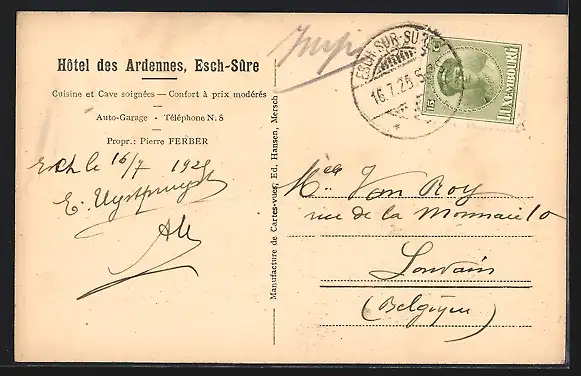 Hôtel des Ardennes, Esch-Sûre
Cuisine et Cave soignées — Confort à prix modérés
Auto-Garage - Téléphone N. 8
Propr.: Pierre FERBER
Esch le 16/7 1925
Manufacture de Cartes-vues, Ed. Hansen, Mersch
ESCH-SUR-SÛRE
16.7.25
LUXEMBOURG
15
Mlle Van Roy
rue de la Monnaie 10
Louvain
(Belgique)